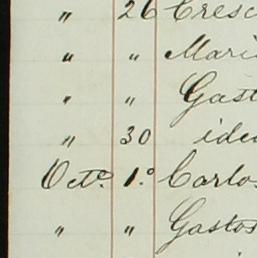 " 26 Cresc
" " Mari
" " Gast
" 30 idem
Octe. 1.º Carlos
" " Gastos